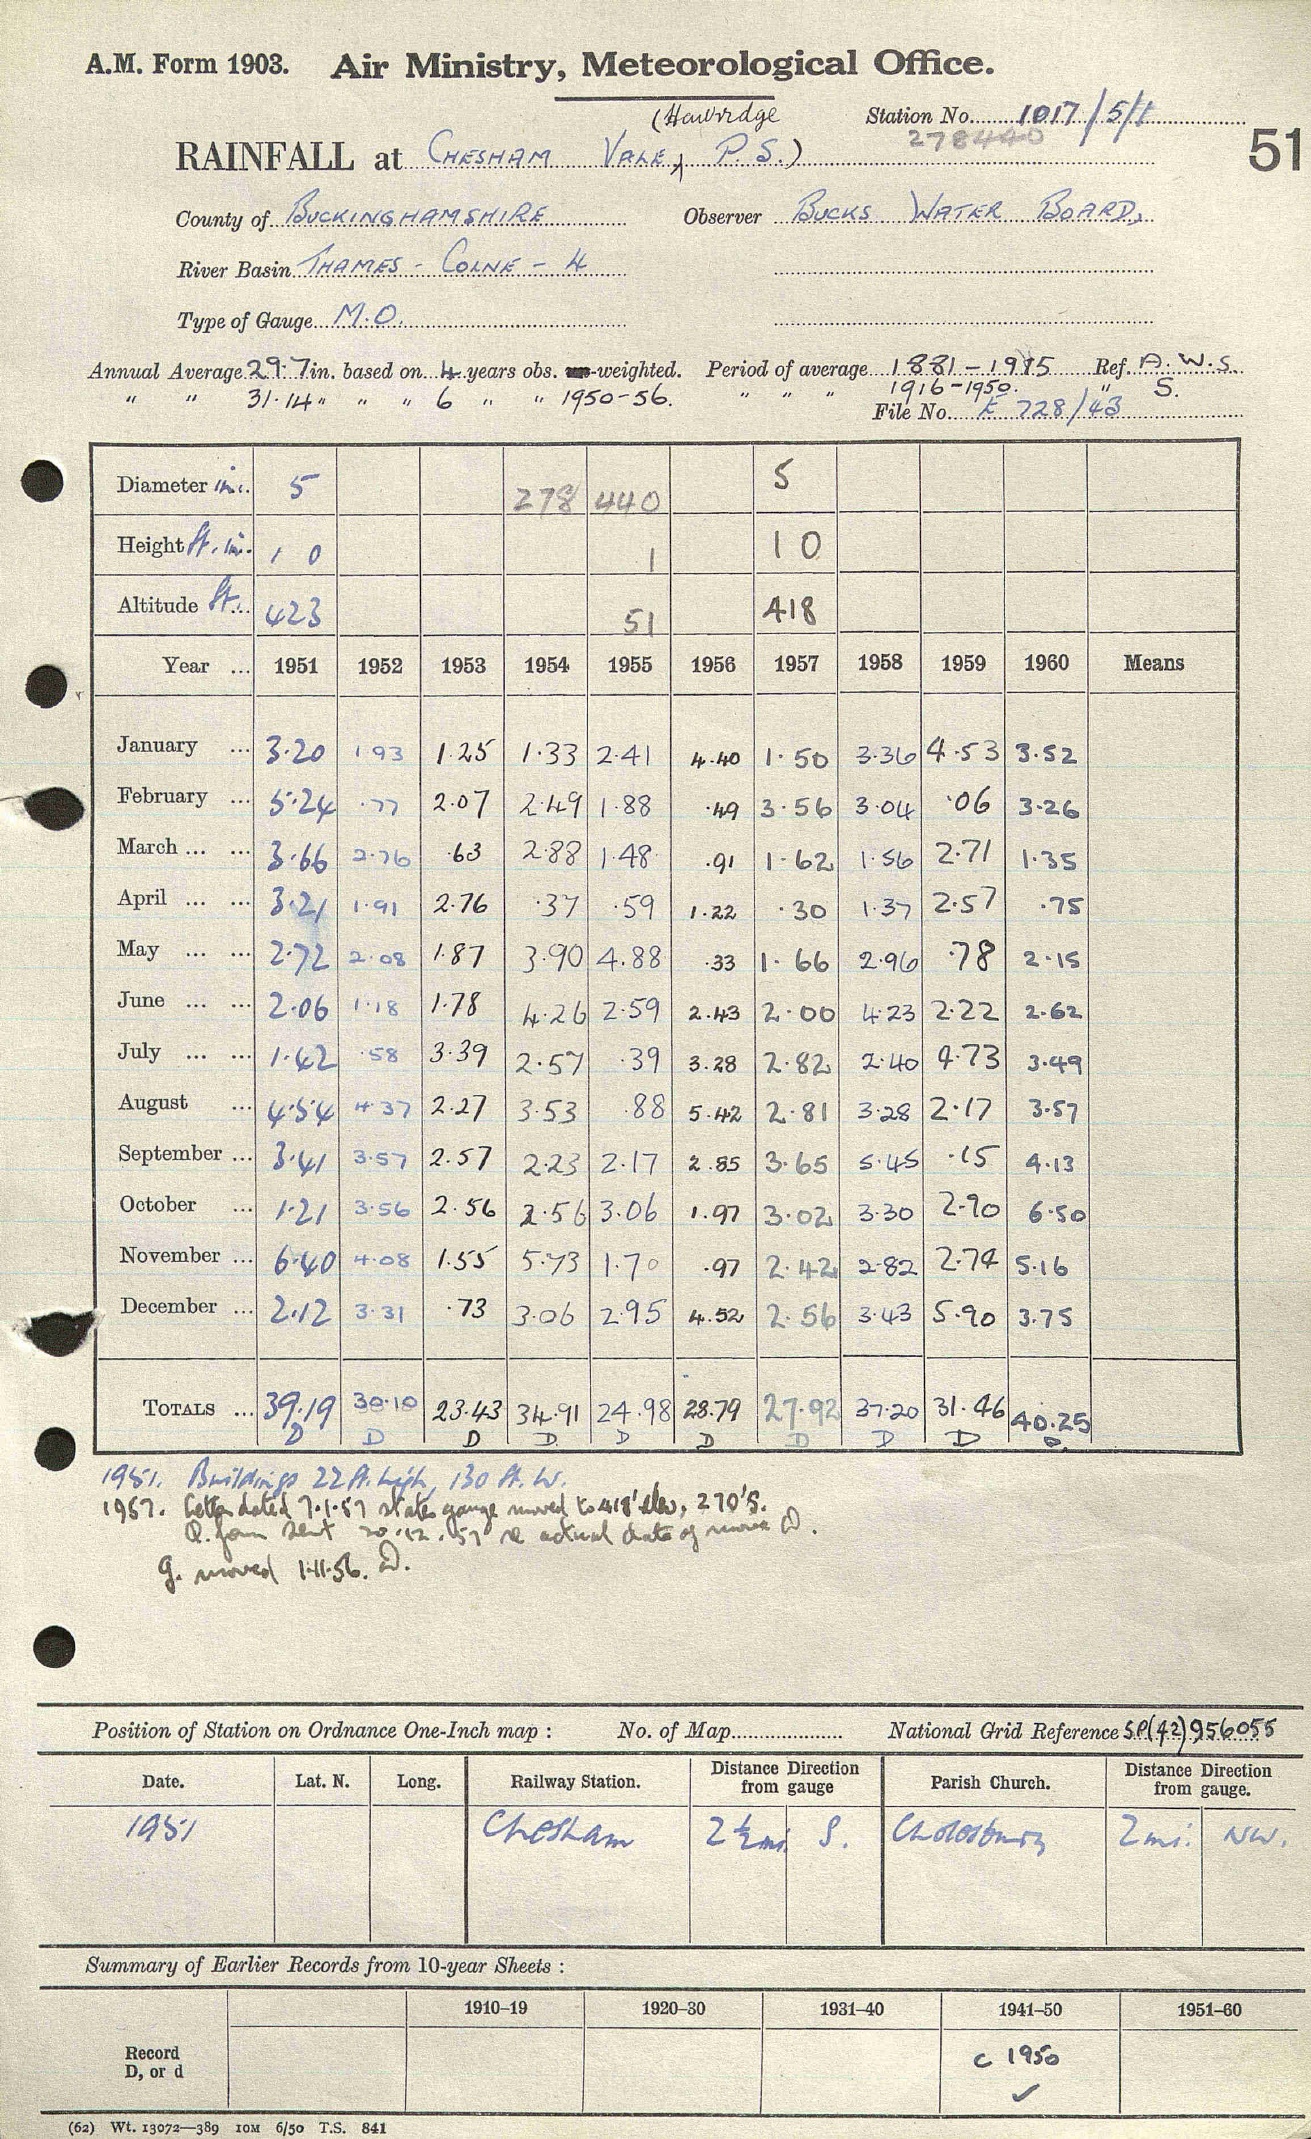 A.M. Form 1903. Air Ministry, Meteorological Office.
(Hawridge
Station No. 1017/5/1
278440
RAINFALL at CHESHAM VALE, P.S.)
51
County of BUCKINGHAMSHIRE Observer BUCKS WATER BOARD,
River Basin THAMES - COLNE - 4
Type of Gauge M.O.
Annual Average 29.7 in. based on 4 years obs. -weighted. Period of average 1881-1915 Ref. A.W.S.
" " 31.14 " " " 6 " " 1950-56. " " " 1916-1950. " S.
File No. 728/43
Diameter in. 5 278 440 5
Height ft. in. 1 0 1 1 0
Altitude ft. 423 51 418
Year ... 1951 1952 1953 1954 1955 1956 1957 1958 1959 1960 Means
January ... 3.20 1.93 1.25 1.33 2.41 4.40 1.50 3.36 4.53 3.52
February ... 5.24 .77 2.07 2.49 1.88 .49 3.56 3.04 .06 3.26
March ... ... 3.66 2.76 .63 2.88 1.48 .91 1.62 1.56 2.71 1.35
April ... ... 3.21 1.91 2.76 .37 .59 1.22 .30 1.37 2.57 .75
May ... ... 2.72 2.08 1.87 3.90 4.88 .33 1.66 2.96 .78 2.15
June ... ... 2.06 1.18 1.78 4.26 2.59 2.43 2.00 4.23 2.22 2.62
July ... ... 1.42 .58 3.39 2.57 .39 3.28 2.82 2.40 4.73 3.49
August ... 4.54 4.37 2.27 3.53 .88 5.42 2.81 3.28 2.17 3.57
September ... 3.41 3.57 2.57 2.23 2.17 2.85 3.65 5.45 .15 4.13
October ... 1.21 3.56 2.56 2.56 3.06 1.97 3.02 3.30 2.90 6.50
November ... 6.40 4.08 1.55 5.73 1.70 .97 2.42 2.82 2.74 5.16
December ... 2.12 3.31 .73 3.06 2.95 4.52 2.56 3.43 5.90 3.75
TOTALS ... 39.19 30.10 23.43 34.91 24.98 28.79 27.92 37.20 31.46 40.25
D D D D D D D D D D
1951. Buildings 22 ft. high, 130 ft. W.
1957. Letter dated 7.1.57 states gauge moved to 418' elev, 270'S.
Q. form sent 20.12.57 re actual date of move D.
g. moved 1.11.56. D.
Position of Station on Ordnance One-Inch map : No. of Map National Grid Reference SP(42)956055
Date. Lat. N. Long. Railway Station. Distance Direction from gauge Parish Church. Distance Direction from gauge.
1951 Chesham 2½mi. S. Cholesbury 2mi. NW.
Summary of Earlier Records from 10-year Sheets :
1910–19 1920–30 1931–40 1941–50 1951–60
Record
D, or d
c 1950
✓
(62) Wt. 13072—389 10M 6/50 T.S. 841